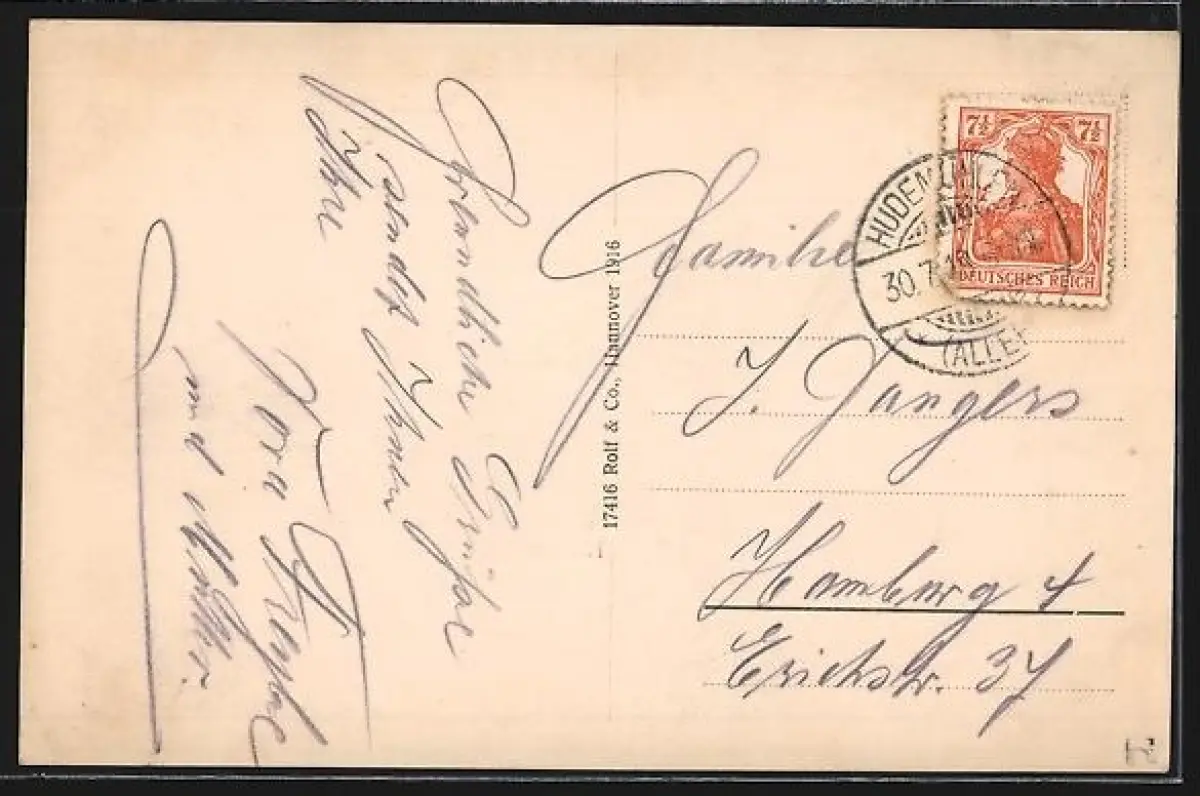 Freundliche Grüße
sendet Ihnen
Ihre
Dora
und Mutter.
17416 Rolf & Co., Hannover 1916
7½ 7½
DEUTSCHES REICH
HUDEM
30.7.
(ALLE
Familie
J. Jangers
Hamburg 4
Erichstr. 37